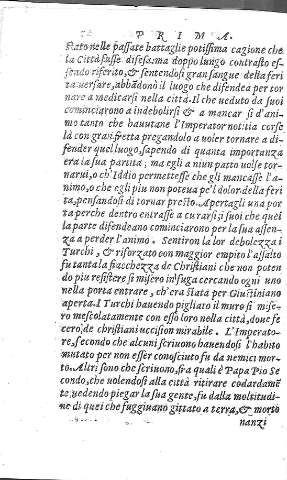 PRIMA.
stato nelle passate battaglie potissima cagione che
la Città fusse difesa. ma doppo lungo contrasto es-
sendo riferito, & sentendosi gran sangue della feri
ta versare, abbādonò il luogo che difendea per tor
nare a medicarsi nella città. Il che ueduto da suoi
cominciarono a indebolirsi & a mancar si d'ani
mo tanto che hauutane l'Imperator notitia corse
là con gran fretta pregandolo a uoler tornare a di
fender quel luogo, sapendo di quanta importanza
era la sua partita; ma egli a niun patto uolse tor
narui, o ch'Iddio permettesse che gli mancasse l'a
nimo, o che egli piu non poteua pe'l dolor della feri
ta, pensandosi di tornar presto. Apertagli una por
ta perche dentro entrasse a curarsi, i suoi che quel
la parte difendeano cominciarono per la sua assen-
za a perder l'animo. Sentiron la lor debolezza i
Turchi, & riforzato con maggior empito l'assalto
fu tanta la fiacchezza de Christiani che non poten
do piu resistere si misero in fuga cercando ogni uno
nella porta entrare, ch'era stata per Giustiniano
aperta. I Turchi hauendo pigliato il muro si mise-
ro mescolatamente con esso loro nella città, doue fe
cero, de christiani uccision mirabile. L'Imperato-
re, secondo che alcuni scriuono hauendosi l'habito
mutato per non esser conosciuto fu da nemici mor-
to. Altri sono che scriuono, fra quali è Papa Pio Se
condo, che uolendosi alla città ritirare codardamē
te, uedendo piegar la sua gente, fu dalla moltitudi-
ne di quei che fuggiuano gittato a terra, & morto
nanzi